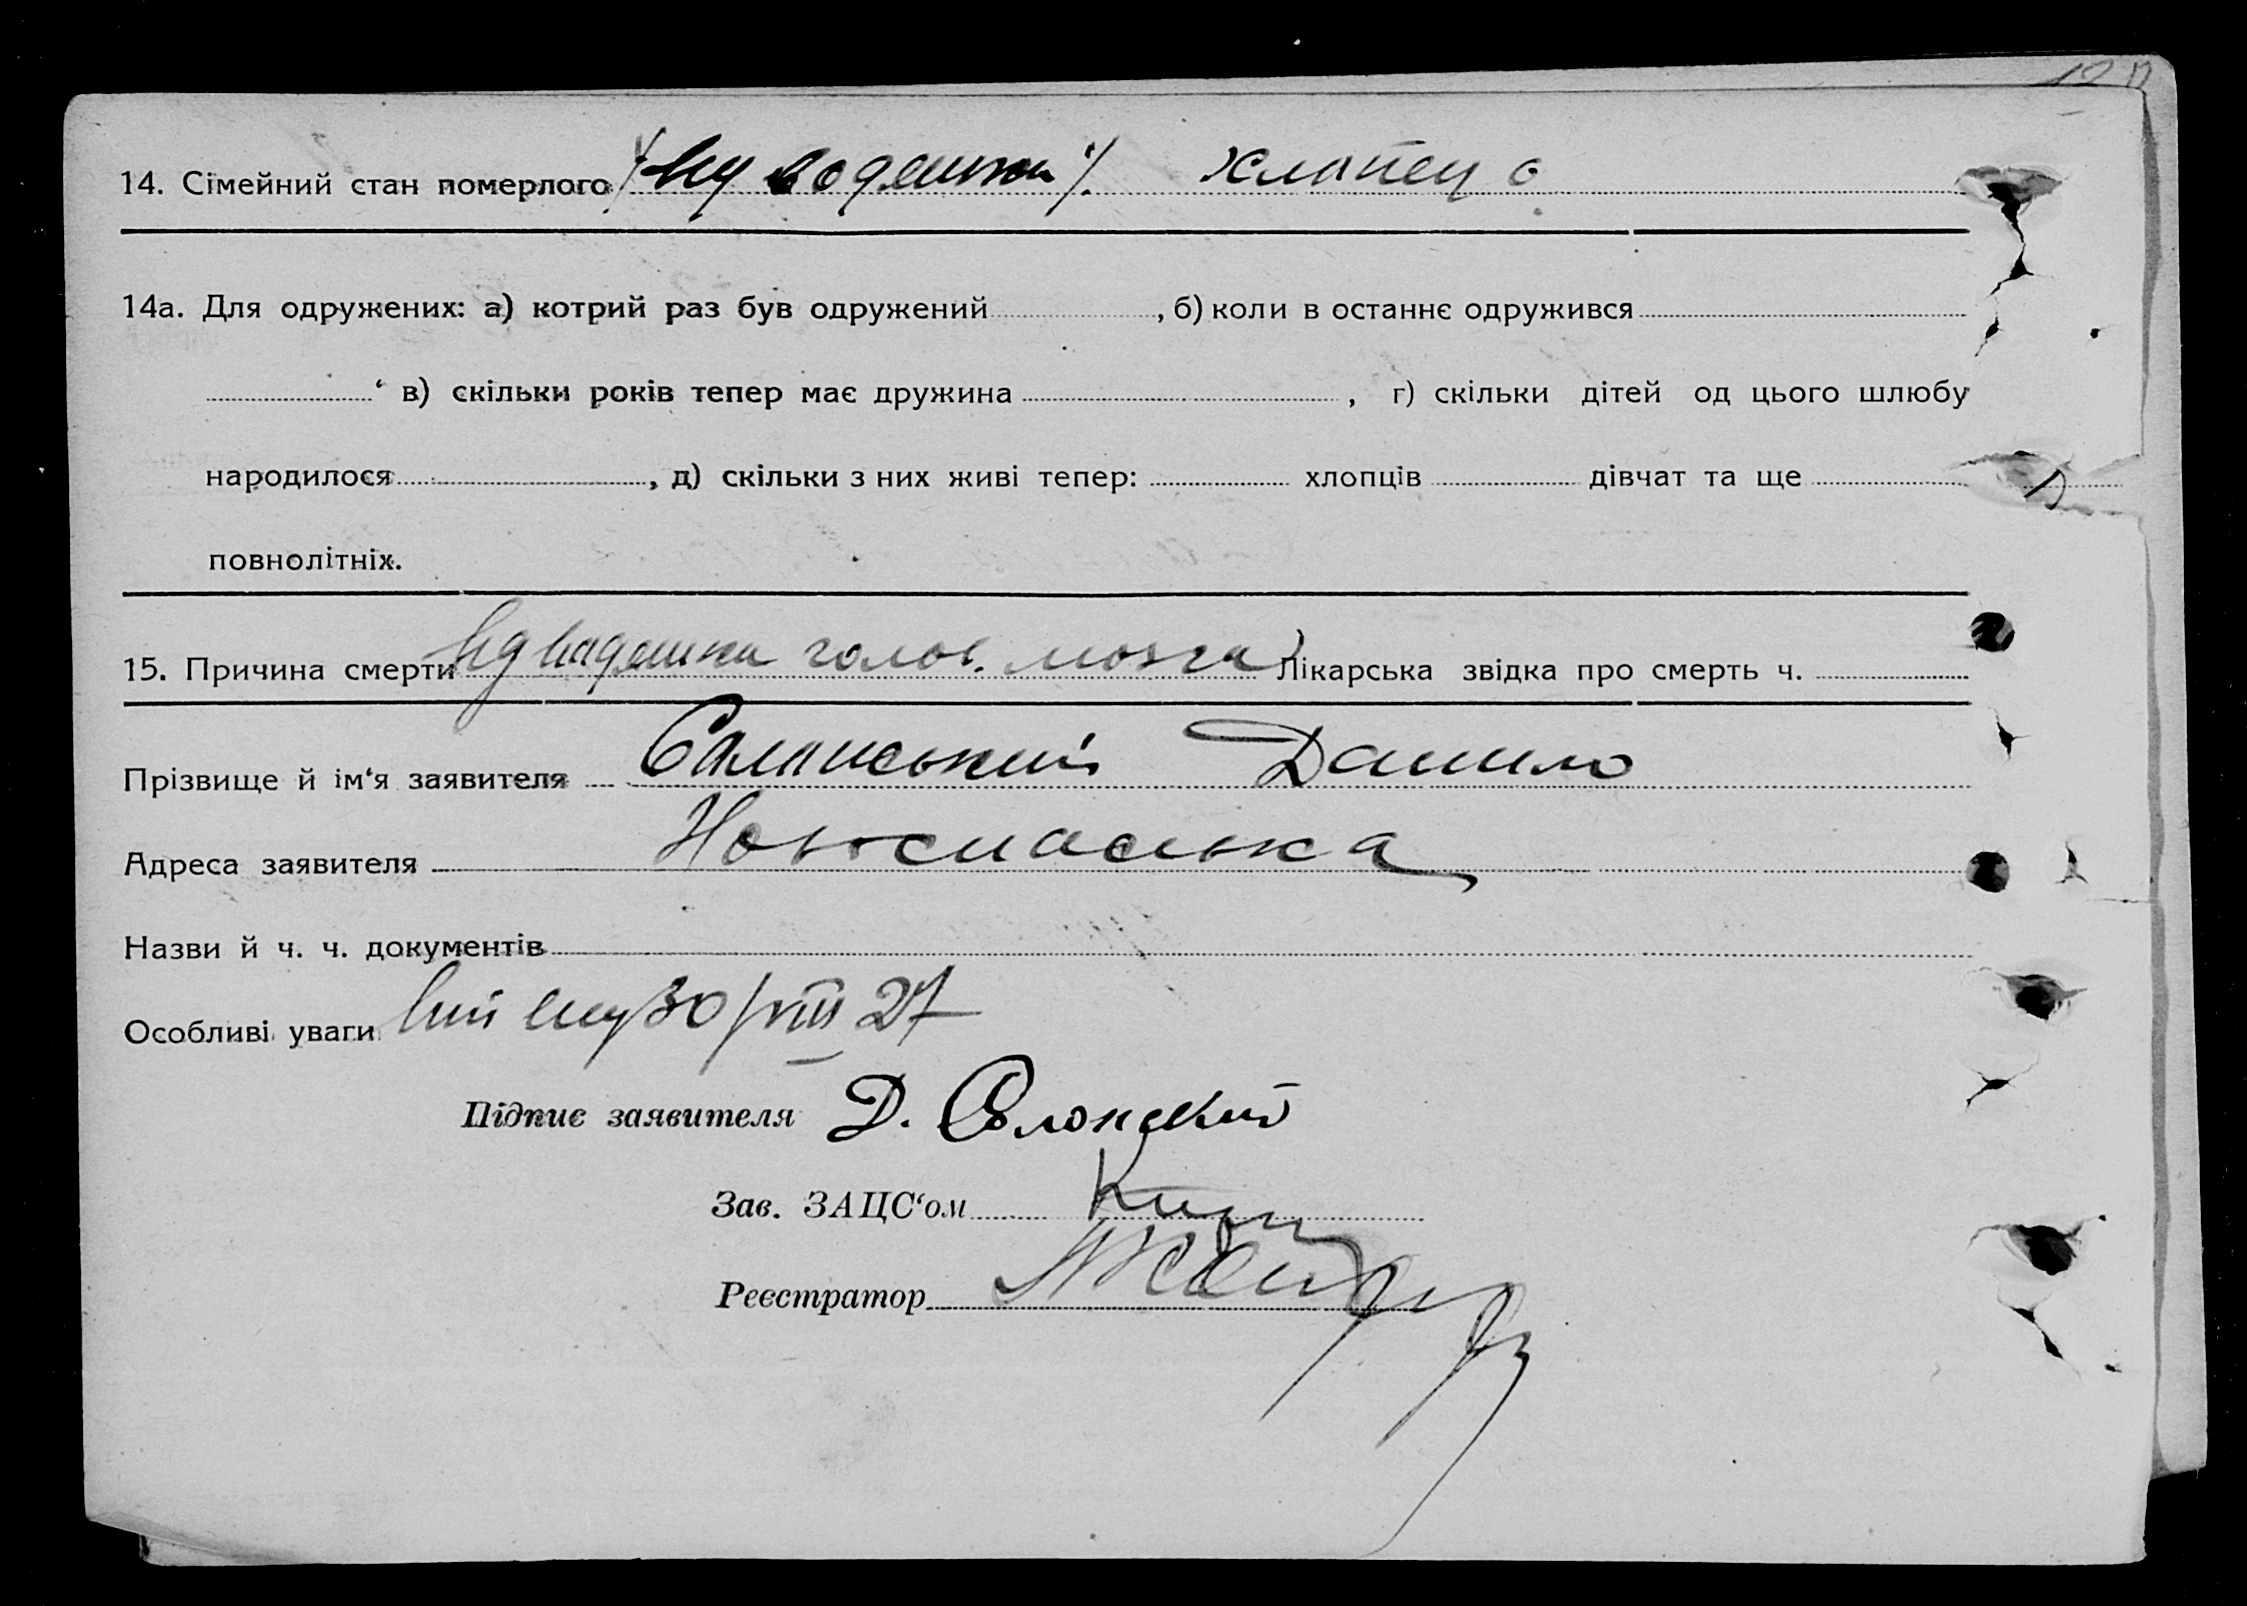 14. Сімейний стан померлого хлопец
14а. Для одружених: а) котрий раз був одружений , б) коли в останнє одружився
‘ в) скільки років тепер має дружина , г) скільки дітей од цього шлюбу
народилося , д) скільки з них живі тепер: хлопців дівчат та ще
повнолітніх.
15. Причина смерти голов. мозга Лікарська звідка про смерть ч.
Прізвище й ім‘я заявителя Данило
Адреса заявителя Новоспаська
Назви й ч. ч. документів
Особливі уваги 30/VIII 27
Підпис заявителя Д.
Зав. ЗАЦС‘ом
Реєстратор